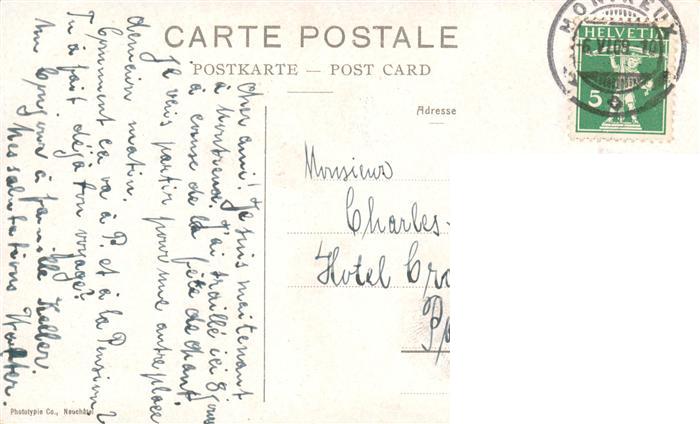 CARTE POSTALE
POSTKARTE — POST CARD
Adresse
MONTREUX
6.VI.08-10
HELVETIA
5
Monsieur
Charles
Hotel
Cher ami! Je suis maitenant
à Montreux. J'ai traillé ici 8 jours
à cause de la fête de chant
Je vais partir pour une autre place
demain matin.
Comment ça va à P. et à la Pension?
Tu à fait déjà ton voyage?
Un bonjour à famille Keller.
Mes salutations Walter.
Phototypie Co., Neuchâtel